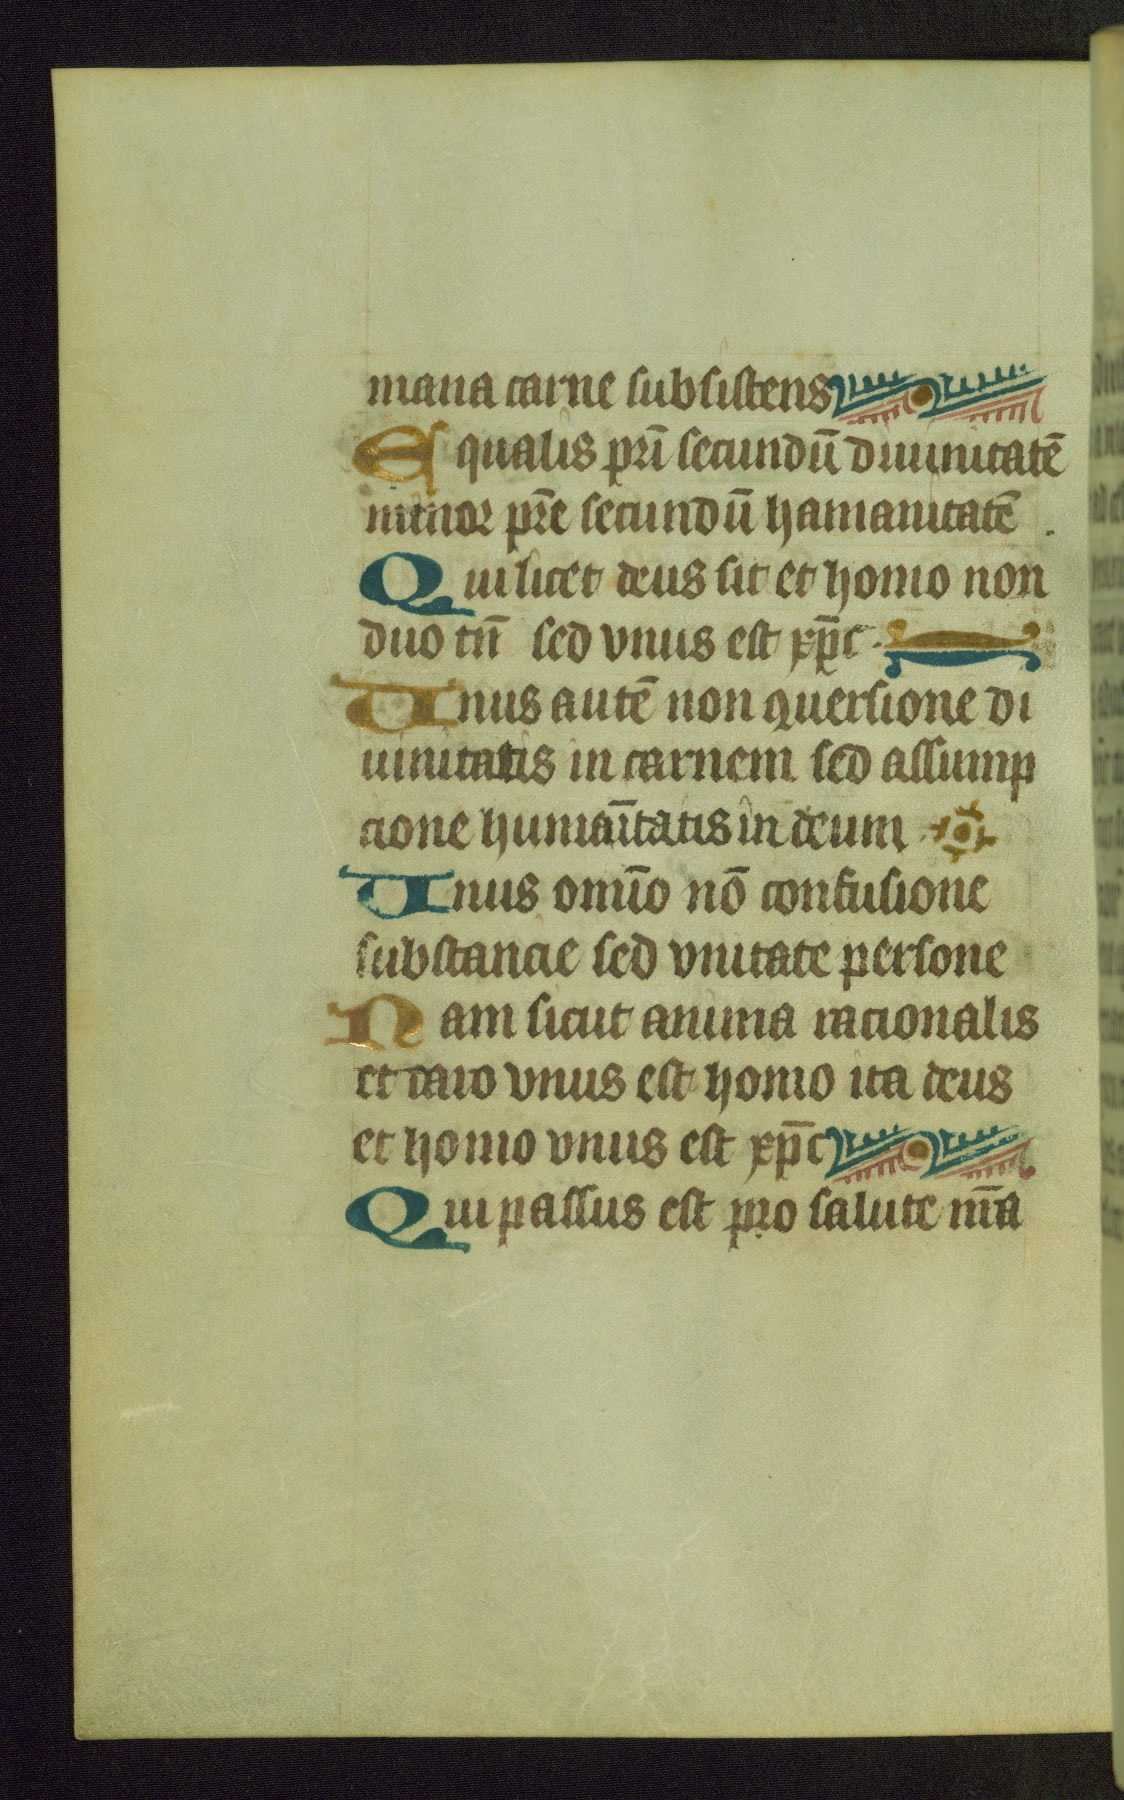 mana carne subsistens
Equalis pr̄i secundū diuinitatē
minor pr̄e secundū hamanitatē
Qui licet deus sit et homo non
duo tn̄ sed vnus est xp̄c
Unus autē non ꝯuersione di
uinitatis in carnem sed assump
cione humaītatis in deum
Unus omīo nō confusione
substancie sed vnitate persone
Nam sicut anima racionalis
et caro vnus est homo ita deus
et homo vnus est xp̄c
Qui passus est pro salute nr̄a